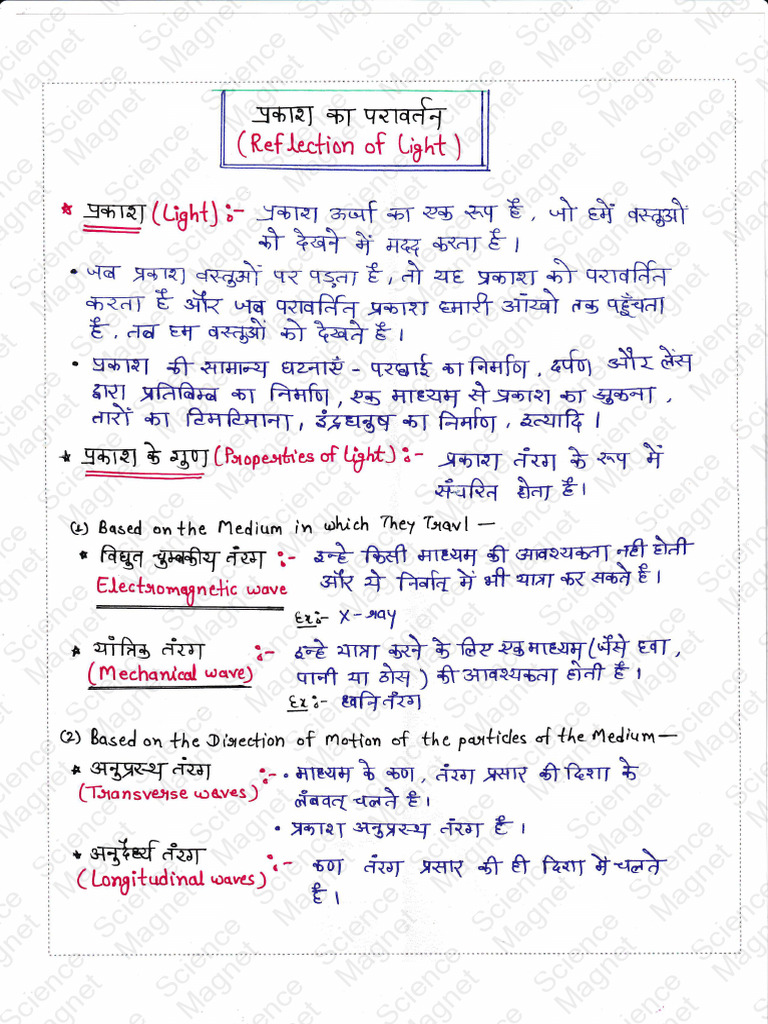 प्रकाश का परावर्तन
(Reflection of Light)
* प्रकाश (Light) :- प्रकाश ऊर्जा का एक रूप है, जो हमें वस्तुओं
को देखने में मदद करता है।
• जब प्रकाश वस्तुओं पर पड़ता है, तो यह प्रकाश को परावर्तित
करता है और जब परावर्तित प्रकाश हमारी आँखो तक पहुँचता
है, तब हम वस्तुओं को देखते है।
• प्रकाश की सामान्य घटनाएँ - परछाई का निर्माण, दर्पण और लेंस
द्वारा प्रतिबिम्ब का निर्माण, एक माध्यम से प्रकाश का झुकना,
तारों का टिमटिमाना, इंद्रधनुष का निर्माण, इत्यादि।
* प्रकाश के गुण (Properties of Light) :- प्रकाश तंरग के रूप में
संचरित होता है।
(1) Based on the Medium in which They Travl —
* विधुत चुम्बकीय तंरग :- इन्हे किसी माध्यम की आवश्यकता नही होती
Electromagnetic wave और ये निर्वात् में भी यात्रा कर सकते है।
Ex:- X-ray
* यांत्रिक तंरग :- इन्हे यात्रा करने के लिए एक माध्यम (जैसे हवा,
(Mechanical wave) पानी या ठोस) की आवश्यकता होती है।
Ex:- ध्वनि तंरग
(2) Based on the Direction of Motion of the particles of the Medium —
* अनुप्रस्थ तंरग :- • माध्यम के कण, तंरग प्रसार की दिशा के
(Transverse waves) लंबवत् चलते है।
• प्रकाश अनुप्रस्थ तंरग है।
* अनुदैर्ध्य तंरग :- कण तंरग प्रसार की ही दिशा में चलते
(Longitudinal waves) है।